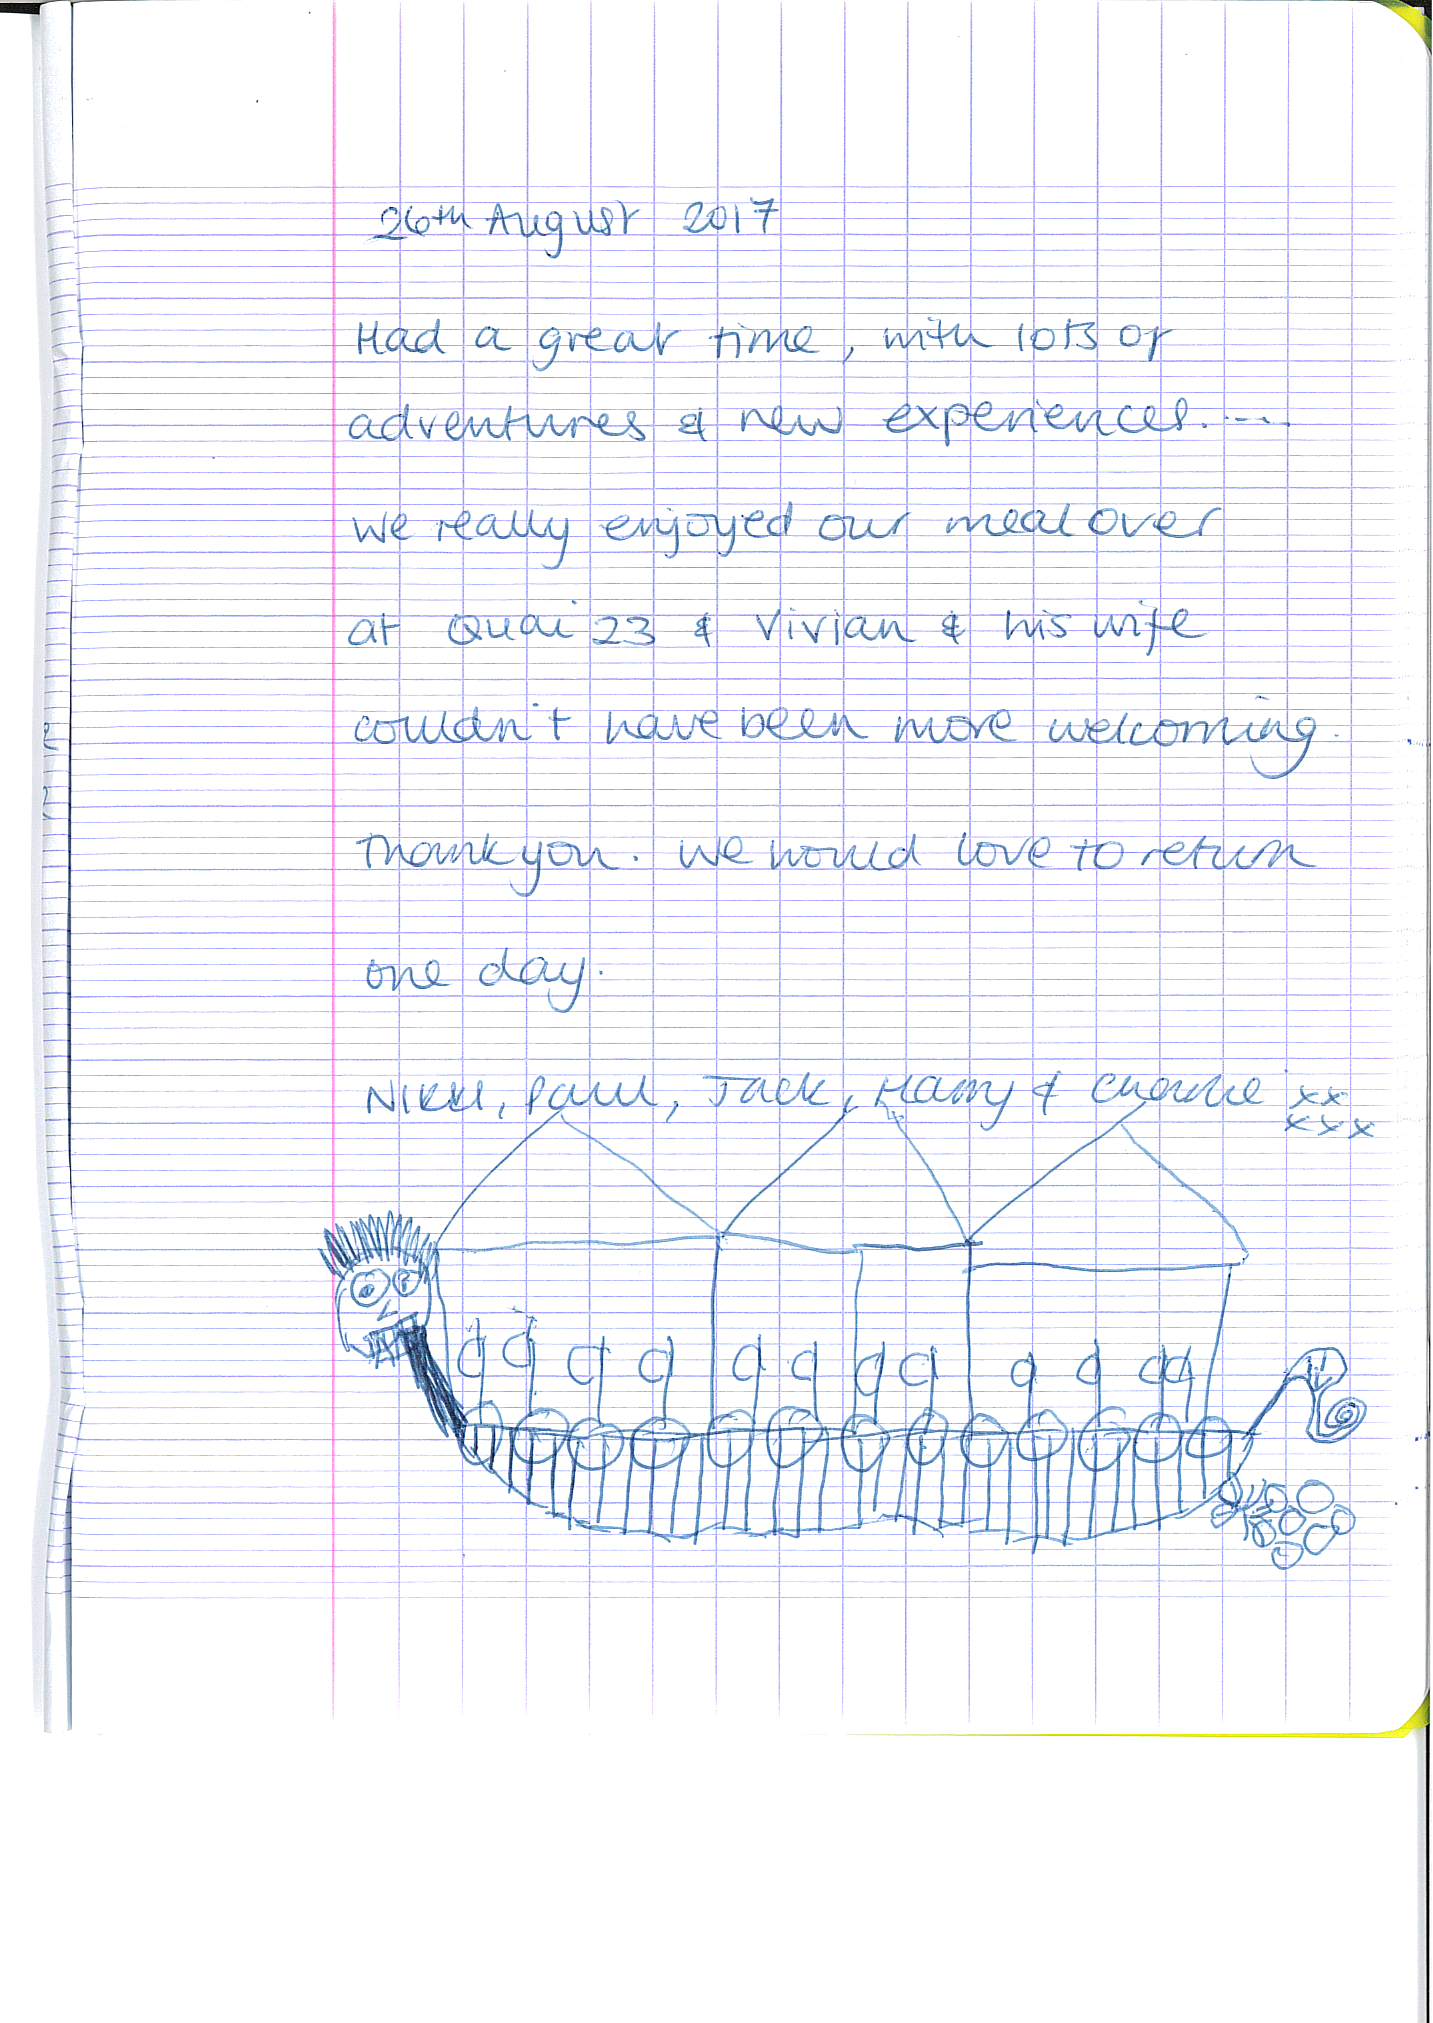 26th August 2017
Had a great time, with lots of
adventures & new experiences.....
We really enjoyed our meal over
at Quai 23 & Vivian & his wife
couldn't have been more welcoming.
Thank you. We would love to return
one day.
Nikki, Paul, Jack, Harry & xx
xxx